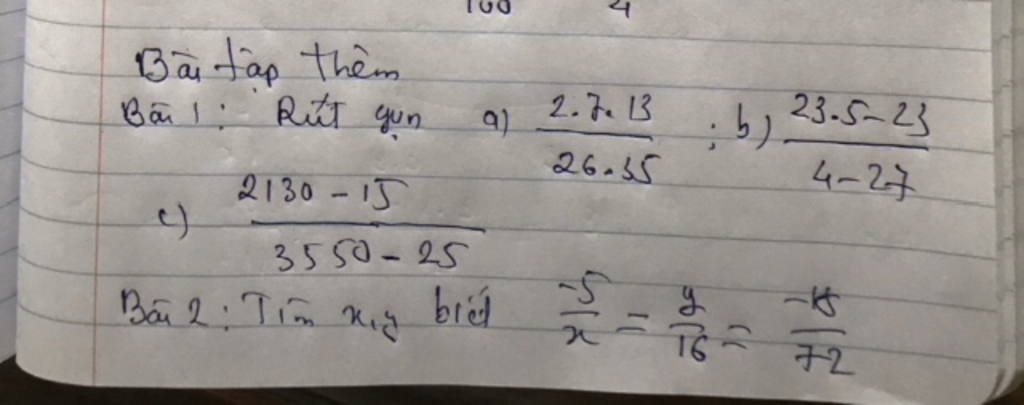 Bài tập thêm
Bài 1: Rút gọn a) 2.7.13 / 26.35 ; b) 23.5-23 / 4-27
c) 2130-15 / 3550-25
Bài 2: Tìm x,y biết -5/x = y/16 = -18/72